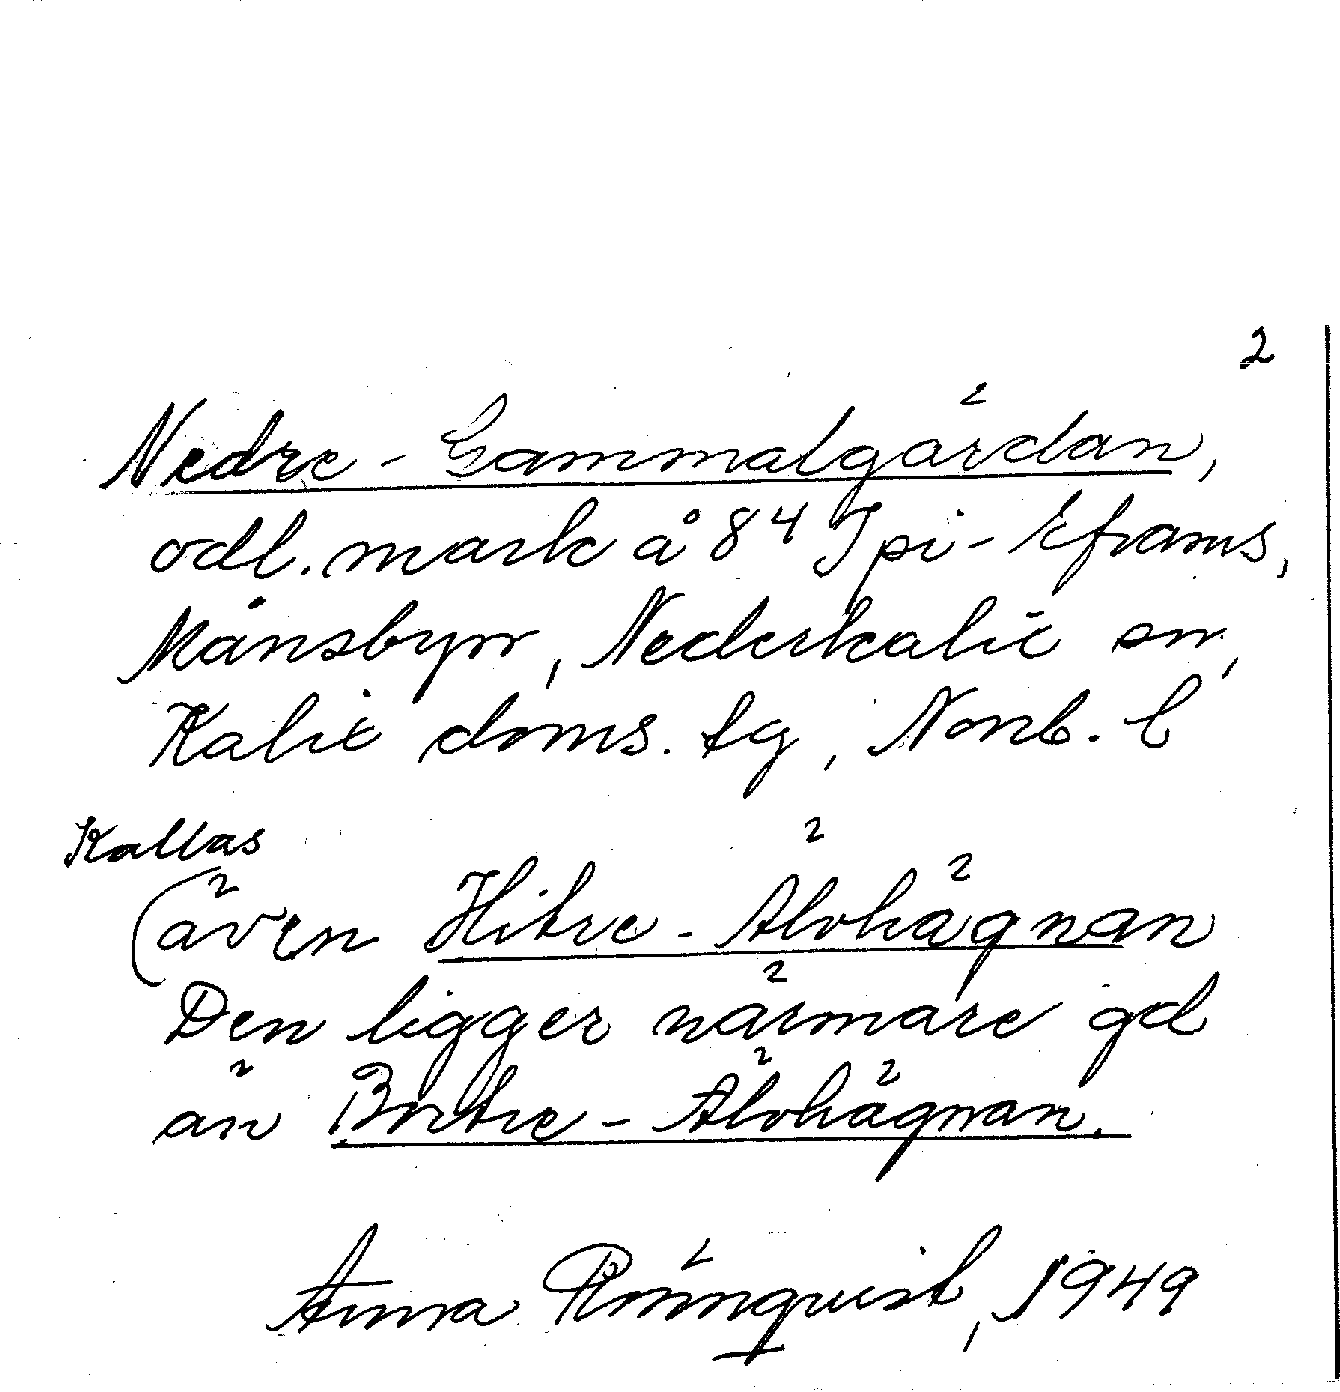 2
Nedre-Gammalgärdan,
odl. mark å 8⁴ Ipi-Eframs,
Månsbyn, Nederkalix sn,
Kalix doms. tg, Norrb. l
Kallas
(även Hitre-Älvhägnan
Den ligger närmare gd
än Bortre-Älvhägnan.
Anna Rönnqvist, 1949